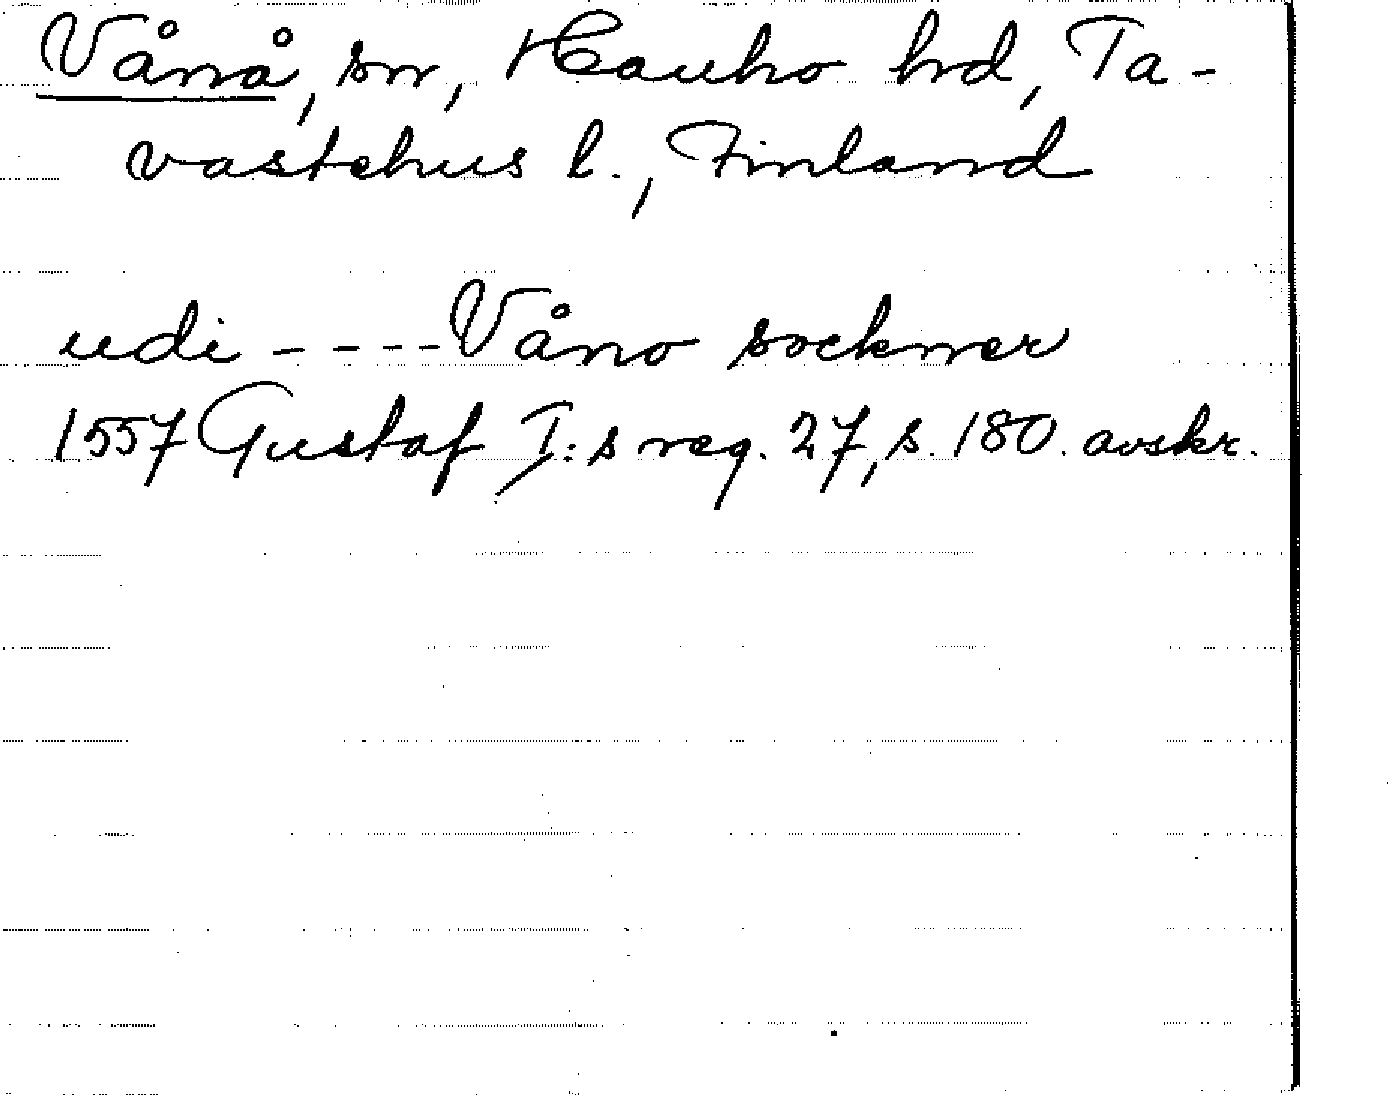 Vånå, sn, Hauho hrd, Ta-
vastehus l., Finland
udi - - - - Våno socknner
1557 Gustaf I:s reg. 27, s. 180. avskr.